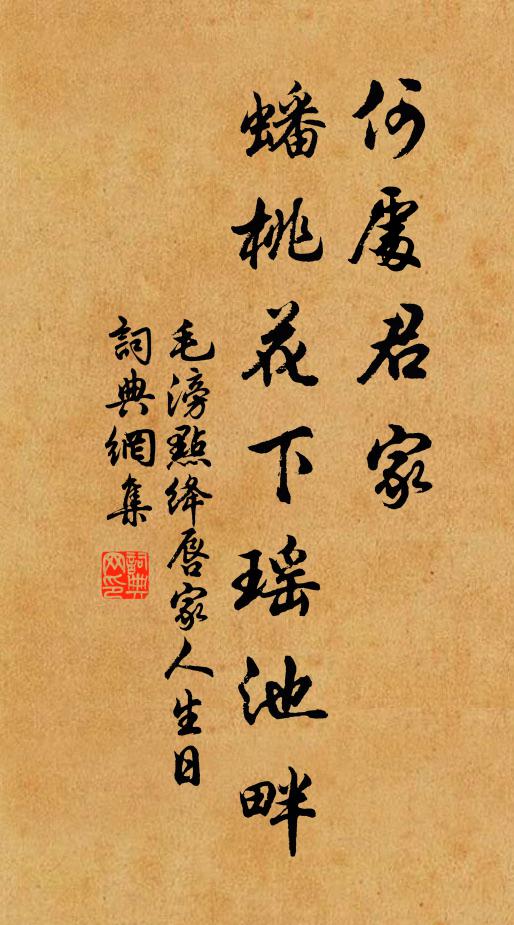 何處君家
蟠桃花下瑶池畔
毛滂點绛唇家人生日
詞典網集
詞典网印